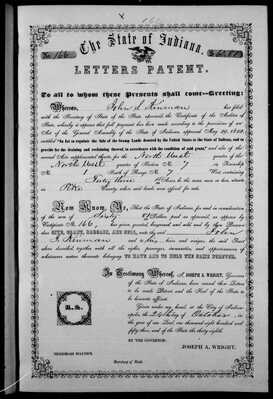 The State of Indiana.
No. 166
LETTERS PATENT.
To all to whom these Presents shall come—Greeting:
Whereas, John S Kinman has filed
with the Secretary of State of the State aforesaid the Certificate of the Auditor of
State, whereby it appears that full payment has been made according to the provisions of an
Act of the General Assembly of the State of Indiana, approved May 29, 1852,
entitled "An Act to regulate the Sale of the Swamp Lands donated by the United States to the State of Indiana, and to
provide for the draining and reclaiming thereof, in accordance with the condition of said grant," and also of the
several Acts supplemental thereto, for the North West quarter of
North West quarter of Section No. 7 in Township
No. 1 South of Range No. 7 West containing
Forty three Acres be the same more or less, situate
in Pike County when said lands were offered for sale.
Now Know Ye, That the State of Indiana, for and in consideration
of the sum of Sixty Dollars paid as aforesaid, as appears by
Certificate No. 166, has given, granted, bargained and sold and by these Presents
does GIVE, GRANT, BARGAIN, AND SELL, unto the said John
S Kinman and to his heirs and assigns, the said Tract
above described together with all the rights, privileges, immunities, and appurtenances of
whatsoever nature thereunto belonging TO HAVE AND TO HOLD THE SAME FOREVER.
In Testimony Whereof, I, JOSEPH A. WRIGHT, Governor
of the State of Indiana have caused these Letters
to be made Patent and the Seal of the State to
be hereunto affixed.
Given under my hand, at the City of Indian-
apolis, the day of October in
the year of our Lord, one thousand eight hundred and
fifty three, and of the State the thirty-eighth.
BY THE GOVERNOR:
JOSEPH A. WRIGHT.
NEHEMIAH HAYDEN,
Secretary of State.